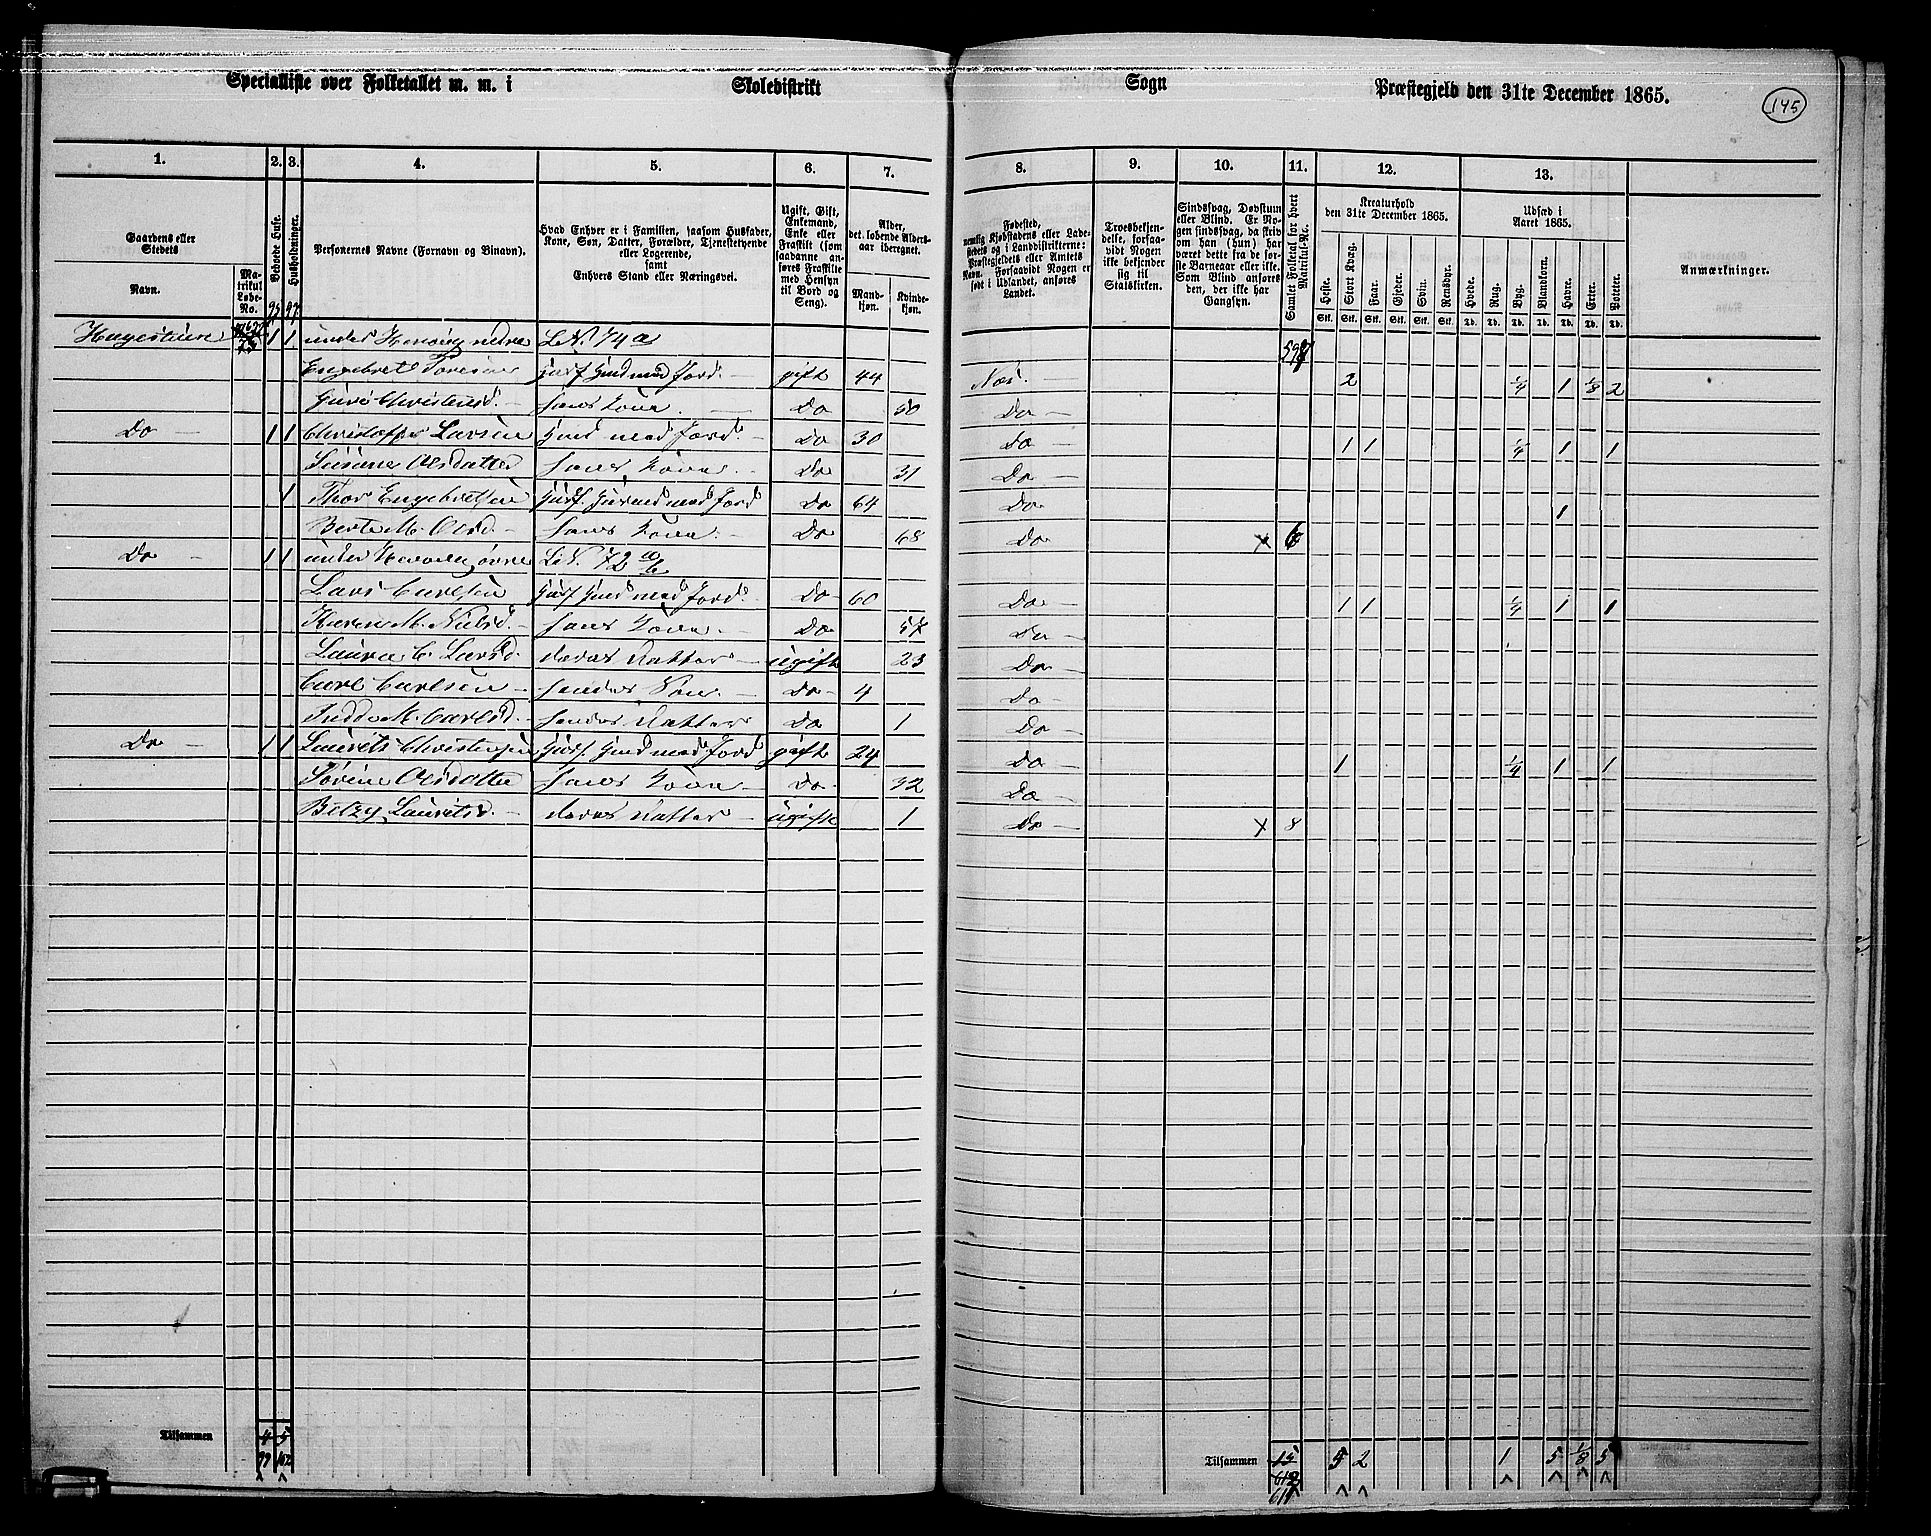 Specialliste over Folketallet m. m. i Skoledistrikt Sogn Præstegjeld den 31te December 1865.
145
1. 2. 3. 4. 5. 6. 7. 8. 9. 10. 11. 12. 13.
Gaardens eller Stedets
Navn.
Matrikul Løbe-No.
Beboede Huse.
Husholdninger.
Personernes Navne (Fornavn og Binavn).
Hvad Enhver er i Familien, saasom Husfader, Kone, Søn, Datter, Forældre, Tjenestetyende eller Logerende,
samt
Enhvers Stand eller Næringsvei.
Ugift, Gift, Enkemand, Enke eller Fraskilt (som saadanne anføres Fraskilte med Hensyn til Bord og Seng).
Alder, det løbende Aldersaar iberegnet.
Mandkjøn.
Kvindekjøn.
Fødested, nemlig Kjøbstadens eller Ladestedets og i Landdistrikterne: Præstegjeldets eller Amtets Navn. Forsaavidt Nogen er født i Udlandet, anføres Landet.
Troesbekjendelse, forsaavidt Nogen ikke bekjender sig til Statskirken.
Sindssvag, Døvstum eller Blind. Er Nogen sindssvag, da skriv om han (hun) har været dette fra de første Barneaar eller ikke. Som Blind anføres den, der ikke har Gangsyn.
Samlet Folketal for hvert Matrikul-No.
Kreaturhold den 31te December 1865.
Heste. Stort Kvæg. Faar. Gjeder. Svin. Rensdyr.
Udsæd i Aaret 1865.
Hvede. Rug. Byg. Blandkorn. Havre. Erter. Poteter.
Stk. Stk. Stk. Stk. Stk. Stk. Td. Td. Td. Td. Td. Td. Td.
Anmærkninger.
95 97
1 1 under Hervig nedre L.N. 74 a
Engebret Toresen Husf Husmd med Jord. gift 44 Næs. 2 1/4 1 1/8 2
Christensd. hans Kone. Do 50 Do
Do 1 1 Christoffer Larsen Husmd med Jord. Do 30 Do 1 1 1/4 1 1
Olsdatter hans Kone. Do 31 Do
1 Thor Engebretsen Husf. Husmd med Jord Do 64 Do 1
Berte M. Olsd. hans Kone. Do 68 Do x 6
Do 1 1 under øvre L.N. 72 a/b
Lars Carlsen Husf Husmd med Jord. Do 60 Do 1 1 1/4 1 1
Karen M. Nielsd. hans Kone. Do 57 Do
Laura C. Larsd. deres Datter ugift 23 Do
Carl Carlsen hendes Søn Do 4 Do
M. Carlsd. hendes Datter Do 1 Do
Do 1 1 Laurits Christensen Husf. Husmd med Jord gift 24 Do 1 1/4 1 1
Sørine Olsdatter hans Kone Do 32 Do
Betzy Lauritsd. deres Datter ugift 1 Do x 8
Tilsammen 4 5
99 102
Tilsammen 15 5 2 1 5 1/8 5